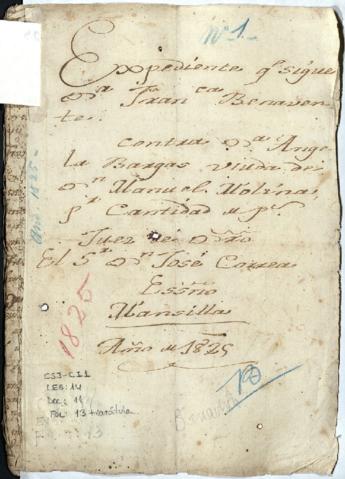 Nº 1.
Expediente q.e sigue
D.a Fran.ca Benaven-
te.
contra D.a Ange-
la Bargas viuda de
D.n Manuel Molina,
p.r Cantidad de p.s
Juez de D.ro
El S.r D.n José Correa
Essno
Mansilla
Año de 1825
Año 1825
1825
CS3-CI1
LEG: 14
DOC: 11
FOL: 13 + carátula